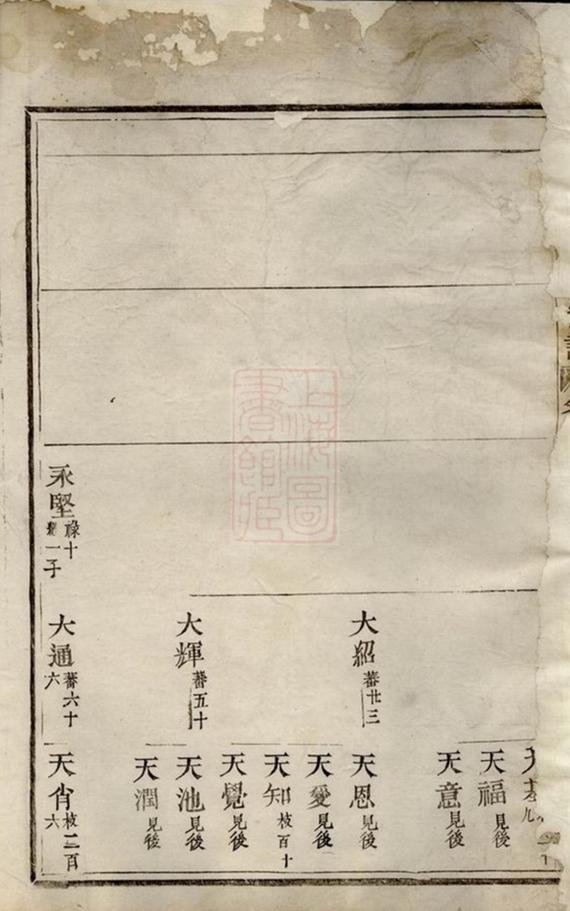 天福見後
天意見後
大紹蕃廿三
天恩見後
天愛見後
天知枝百十
天覺見後
大輝蕃五十
天池見後
天潤見後
永堅祿十
一子
大通蕃六十六
天肖枝二百六
上海圖書館藏